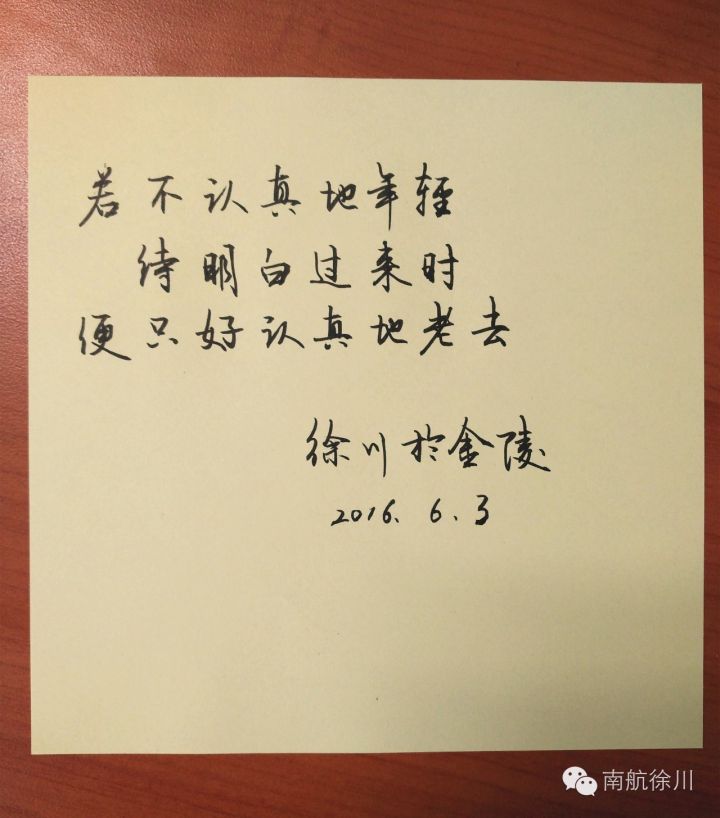 若不认真地年轻
待明白过来时
便只好认真地老去
徐川於金陵
2016. 6. 3
南航徐川